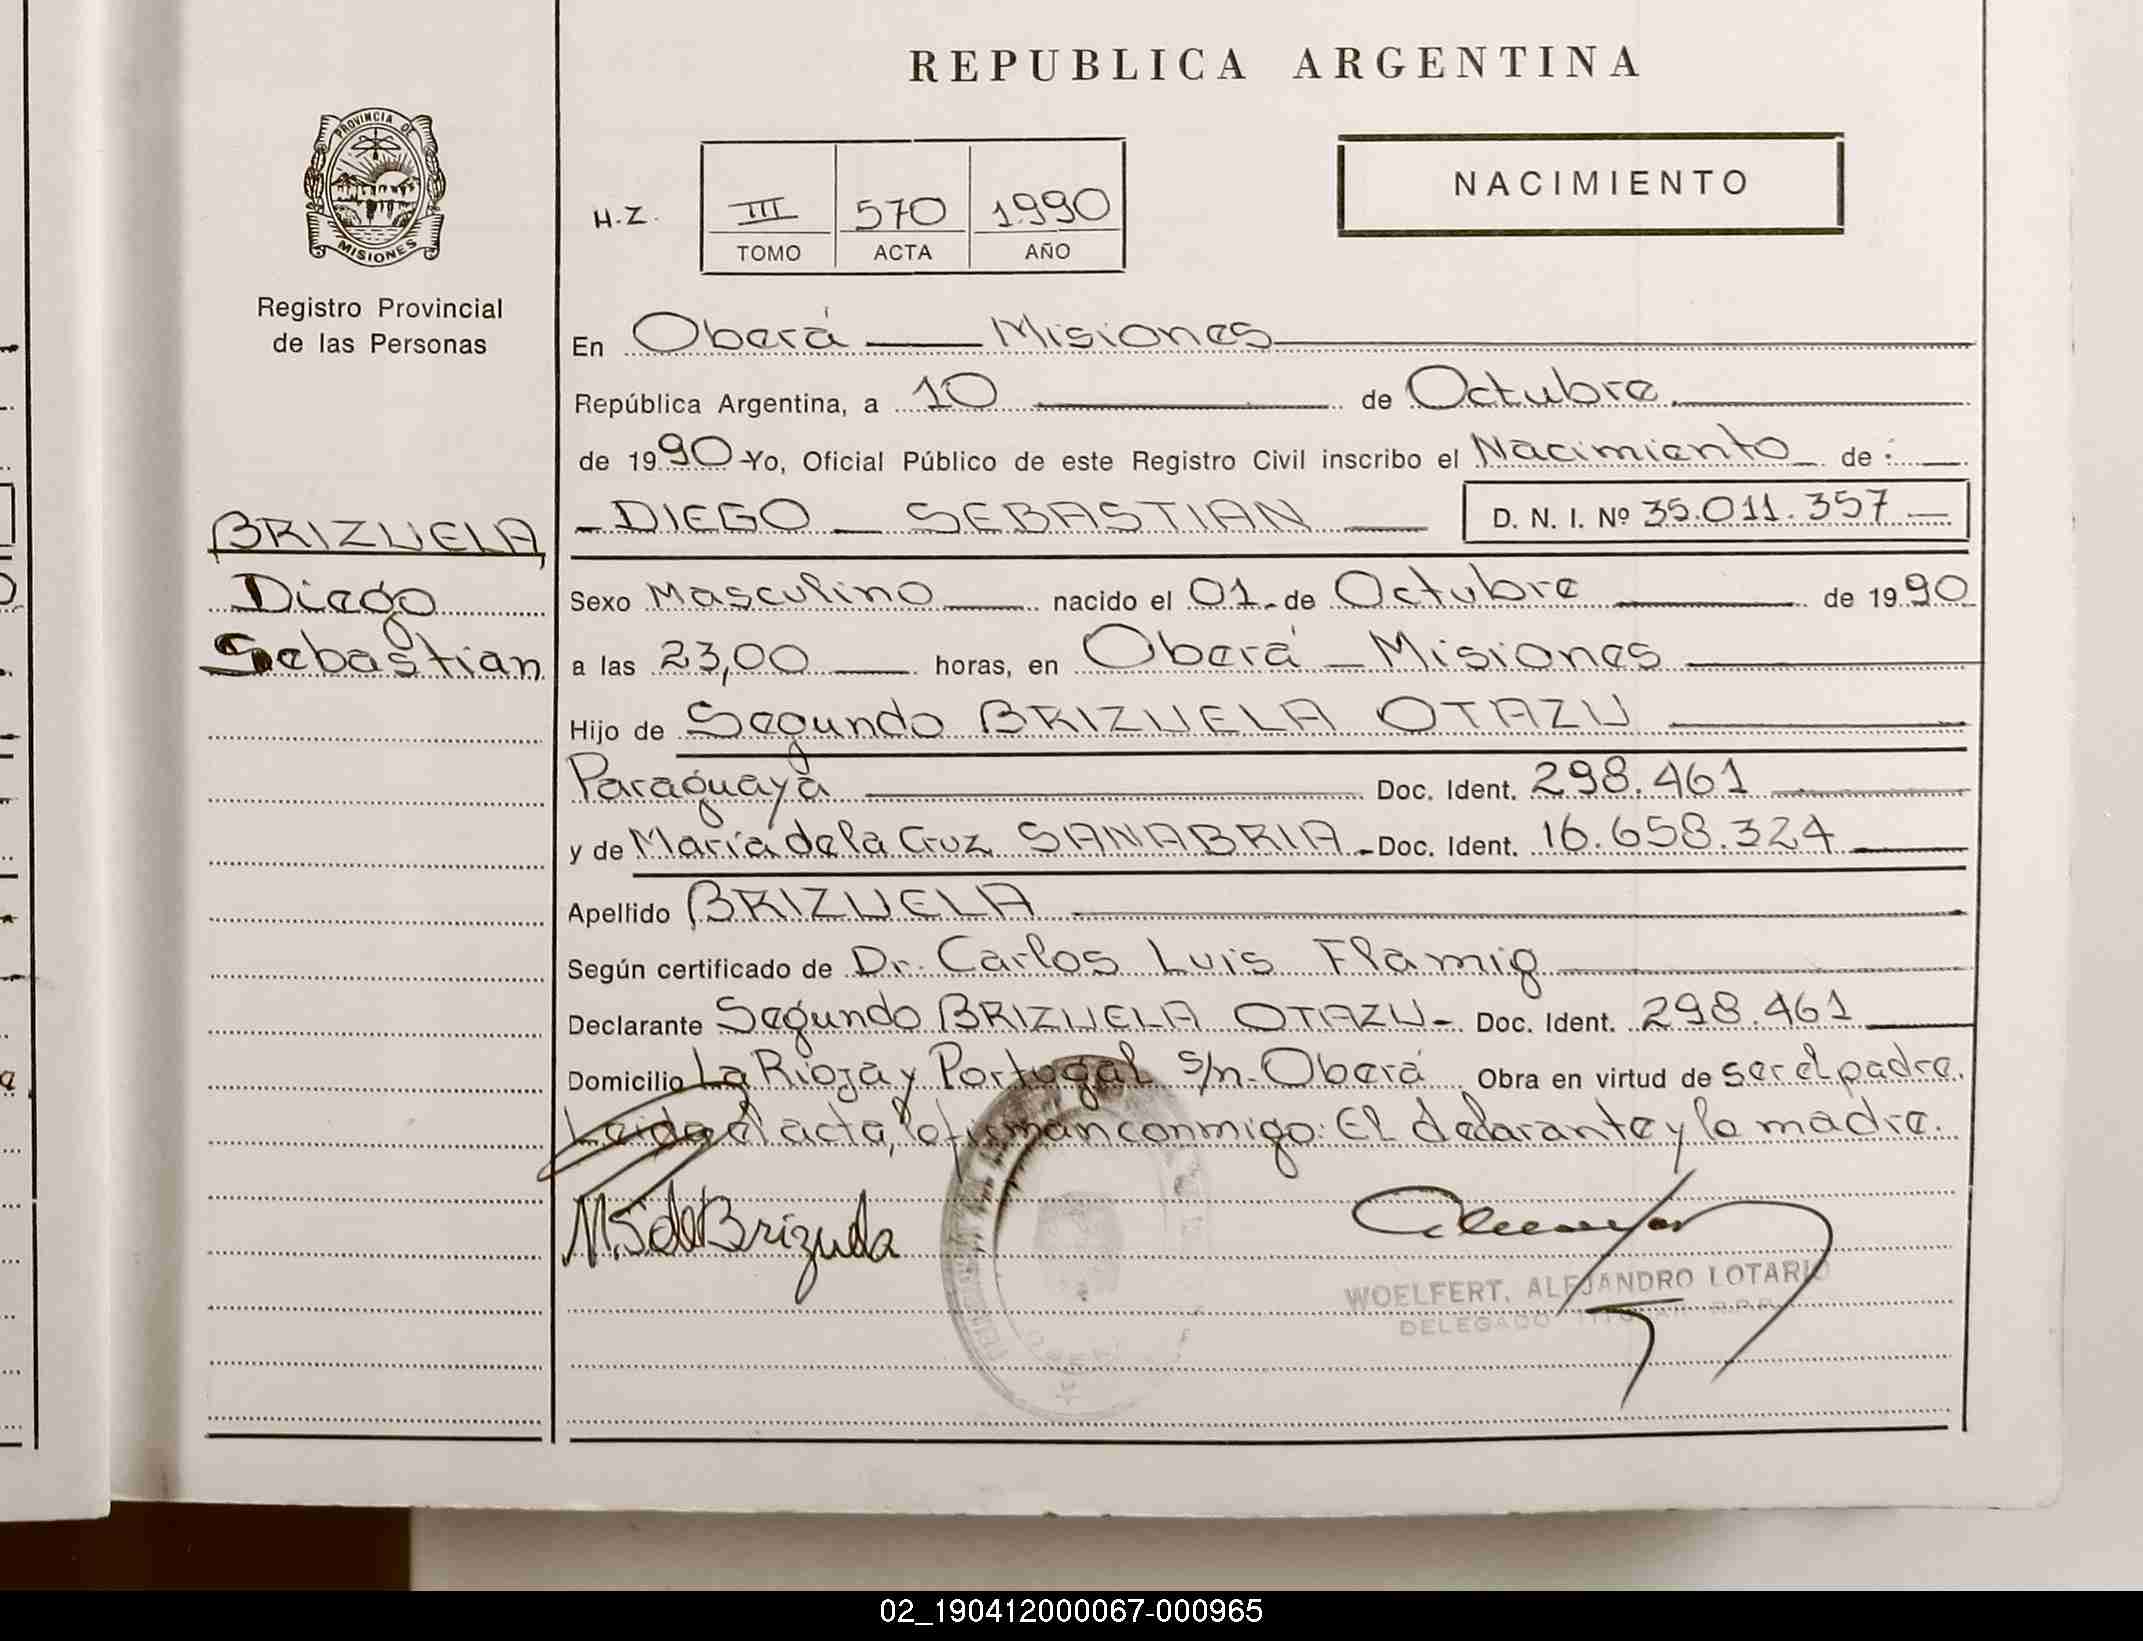 REPUBLICA ARGENTINA
PROVINCIA DE
MISIONES
Registro Provincial
de las Personas
NACIMIENTO
H.Z.
III 570 1990
TOMO ACTA AÑO
En Oberá — Misiones
República Argentina, a 10 de Octubre
de 1990 Yo, Oficial Público de este Registro Civil inscribo el Nacimiento de:
BRIZUELA
Diego
Sebastian
DIEGO — SEBASTIAN
D. N. I. Nº 35.011.357
Sexo Masculino nacido el 01 de Octubre de 1990
a las 23,00 horas, en Oberá — Misiones
Hijo de Segundo BRIZUELA OTAZU
Paraguaya Doc. Ident. 298.461
y de María de la Cruz SANABRIA Doc. Ident. 16.658.324
Apellido BRIZUELA
Según certificado de Dr. Carlos Luis Flamig
Declarante Segundo BRIZUELA OTAZU Doc. Ident. 298.461
Domicilio La Rioja y Portugal s/n. Oberá Obra en virtud de ser el padre.
Leida el acta, lo firman conmigo: El declarante y la madre.
M.S de Brizuela
WOELFERT, ALEJANDRO LOTARIO
DELEGADO TITULAR
02_190412000067-000965